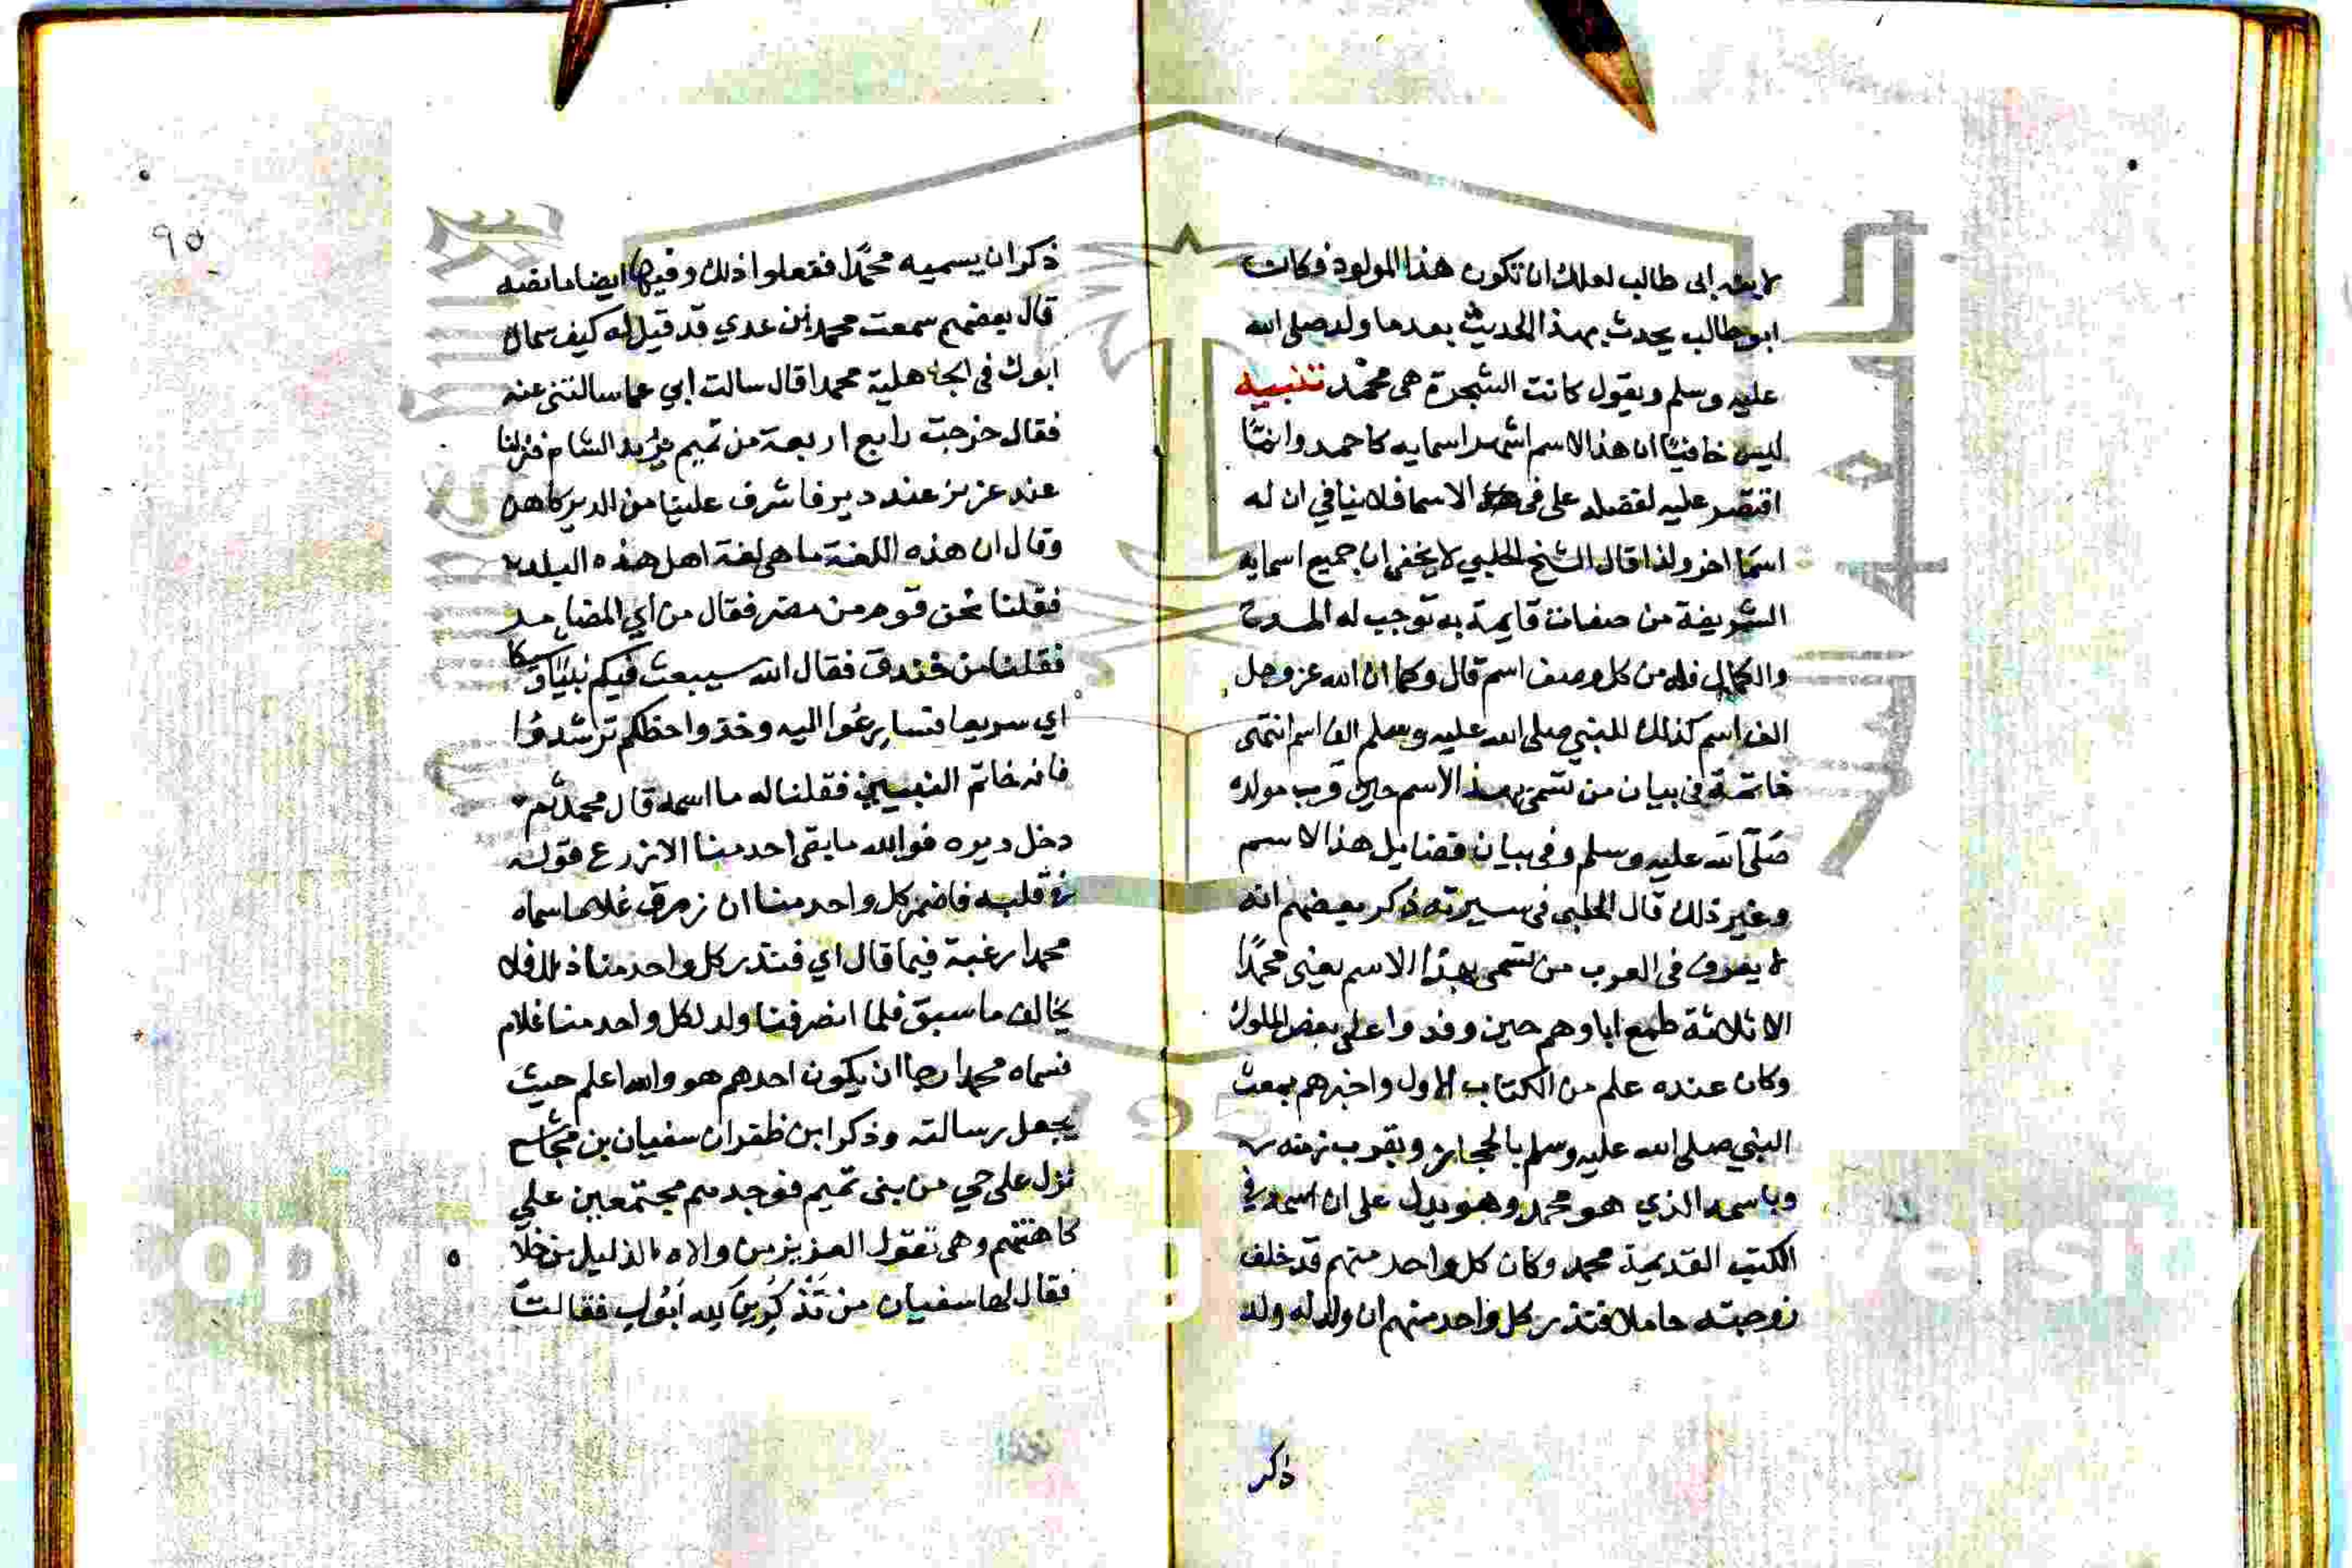 لابنه ابى طالب لعلك ان تكون هذا المولود فكان
ابو طالب يحدث بهذا الحديث بعدما ولد صلى الله
عليه وسلم ويقول كانت الشجرة هى محمد تنبيه
ليس خافيًا ان هذا الاسم اشهر اسمايه كاحمد وانما
اقتصر عليه لفضله على الاسما فلا ينافي ان له
اسما اخر ولذا قال الشيخ الحلبي لا يخفى ان جميع اسمايه
الشريفة من صفات قايمة به توجب له المدح
والكمال فله من كل وصف اسم قال وكما ان الله عز وجل
الف اسم كذلك للنبي صلى الله عليه وسلم الف اسم انتهى
خاتمة فى بيان من تسمى بهذا الاسم حين قرب مولده
صلى الله عليه وسلم وفى بيان فضايل هذا الاسم
وغير ذلك قال الحلبي فى سيرته ذكر بعضهم انه
لا يعرف فى العرب من تسمى بهذا الاسم يعنى محمدًا
الا ثلاثة طمع اباوهم حين وفدوا على بعض الملوك
وكان عنده علم من الكتاب الاول واخبرهم بمعث
النبي صلى الله عليه وسلم بالحجاز وبقرب زمنه
وباسمه الذي هو محمد وهو يدل على ان اسمه في
الكتب القديمة محمد وكان كل واحد منهم قد خلف
زوجته حاملا فنذر كل واحد منهم ان ولد له ولد
ذكر
٩٥
ذكر ان يسميه محمدًا ففعلوا ذلك وفيها ايضا ما نصه
قال بعضهم سمعت محمد بن عدي قد قيل له كيف سماك
ابوك فى الجاهلية محمدا قال سالت ابي عما سالتنى عنه
فقال خرجت رابع اربعة من تميم نريد الشام فنزلنا
عند غزير عند دير فاشرف علينا من الدير كاهن
وقال ان هذه اللغة ما هى لغة اهل هذه البلد
فقلنا نحن قوم من مضر فقال من اي المضاير
فقلنا من خندف فقال الله سيبعث فيكم نبيا وشيكا
اي سريعا فتسارعوا اليه وخذوا حظكم ترشدوا
فانه خاتم النبيين فقلنا له ما اسمه قال محمد ثم
دخل ديره فوالله ما بقى احد منا الا زرع قوله
فى قلبه فاضمر كل واحد منا ان رزق غلاما سماه
محمدا رغبة فيما قال اي فنذر كل واحد منا ذلك فلا
يخالف ما سبق فلما انصرفنا ولد لكل واحد منا غلام
فسماه محمدا رجا ان يكون احدهم هو والله اعلم حيث
يجعل رسالته وذكر ابن ظفر ان سفيان بن مجاشع
نزل على حي من بنى تميم فوجدهم مجتمعين على
كاهنتهم وهى تقول العزيز من والاه والذليل من خلا
فقال لها سفيان من تذكرين لله ابوك فقالت